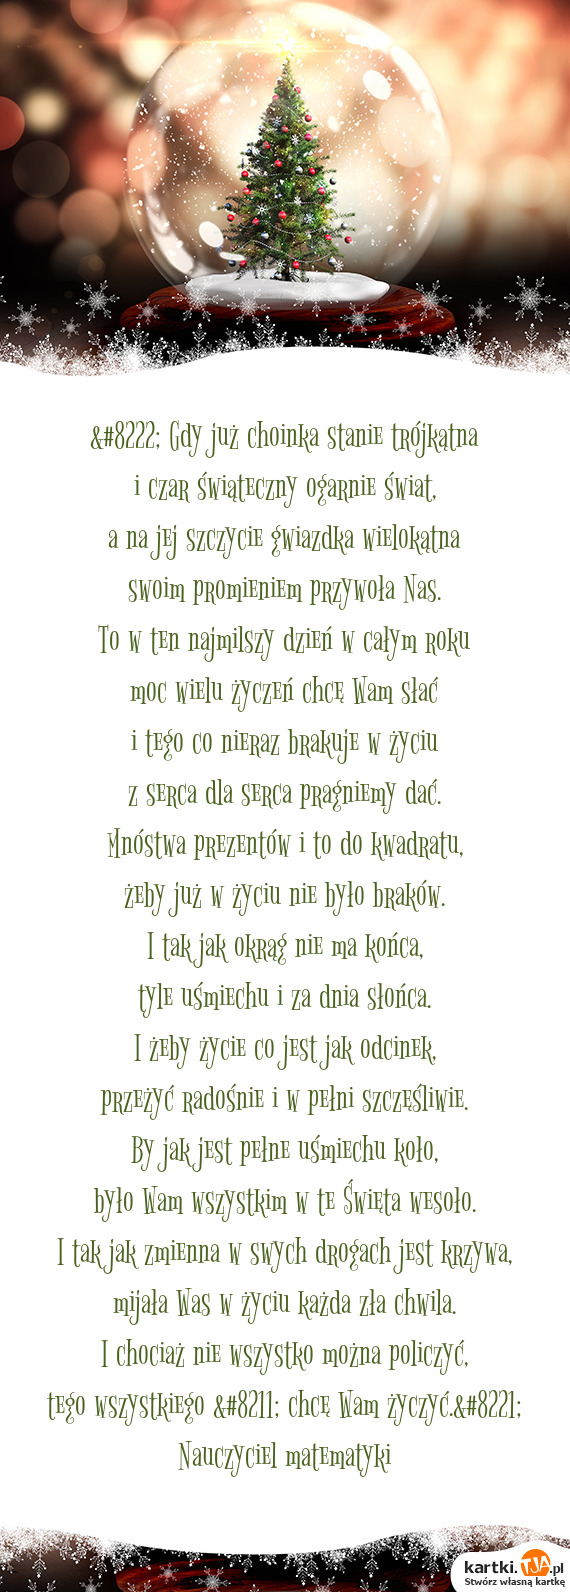 &#8222; Gdy już choinka stanie trójkątna
i czar świąteczny ogarnie świat,
a na jej szczycie gwiazdka wielokątna
swoim promieniem przywoła Nas.
To w ten najmilszy dzień w całym roku
moc wielu życzeń chcę Wam słać
i tego co nieraz brakuje w życiu
z serca dla serca pragniemy dać.
Mnóstwa prezentów i to do kwadratu,
żeby już w życiu nie było braków.
I tak jak okrąg nie ma końca,
tyle uśmiechu i za dnia słońca.
I żeby życie co jest jak odcinek,
przeżyć radośnie i w pełni szczęśliwie.
By jak jest pełne uśmiechu koło,
było Wam wszystkim w te Święta wesoło.
I tak jak zmienna w swych drogach jest krzywa,
mijała Was w życiu każda zła chwila.
I chociaż nie wszystko można policzyć,
tego wszystkiego &#8211; chcę Wam życzyć.&#8221;
Nauczyciel matematyki
kartki.TJA.pl
Stwórz własną kartkę